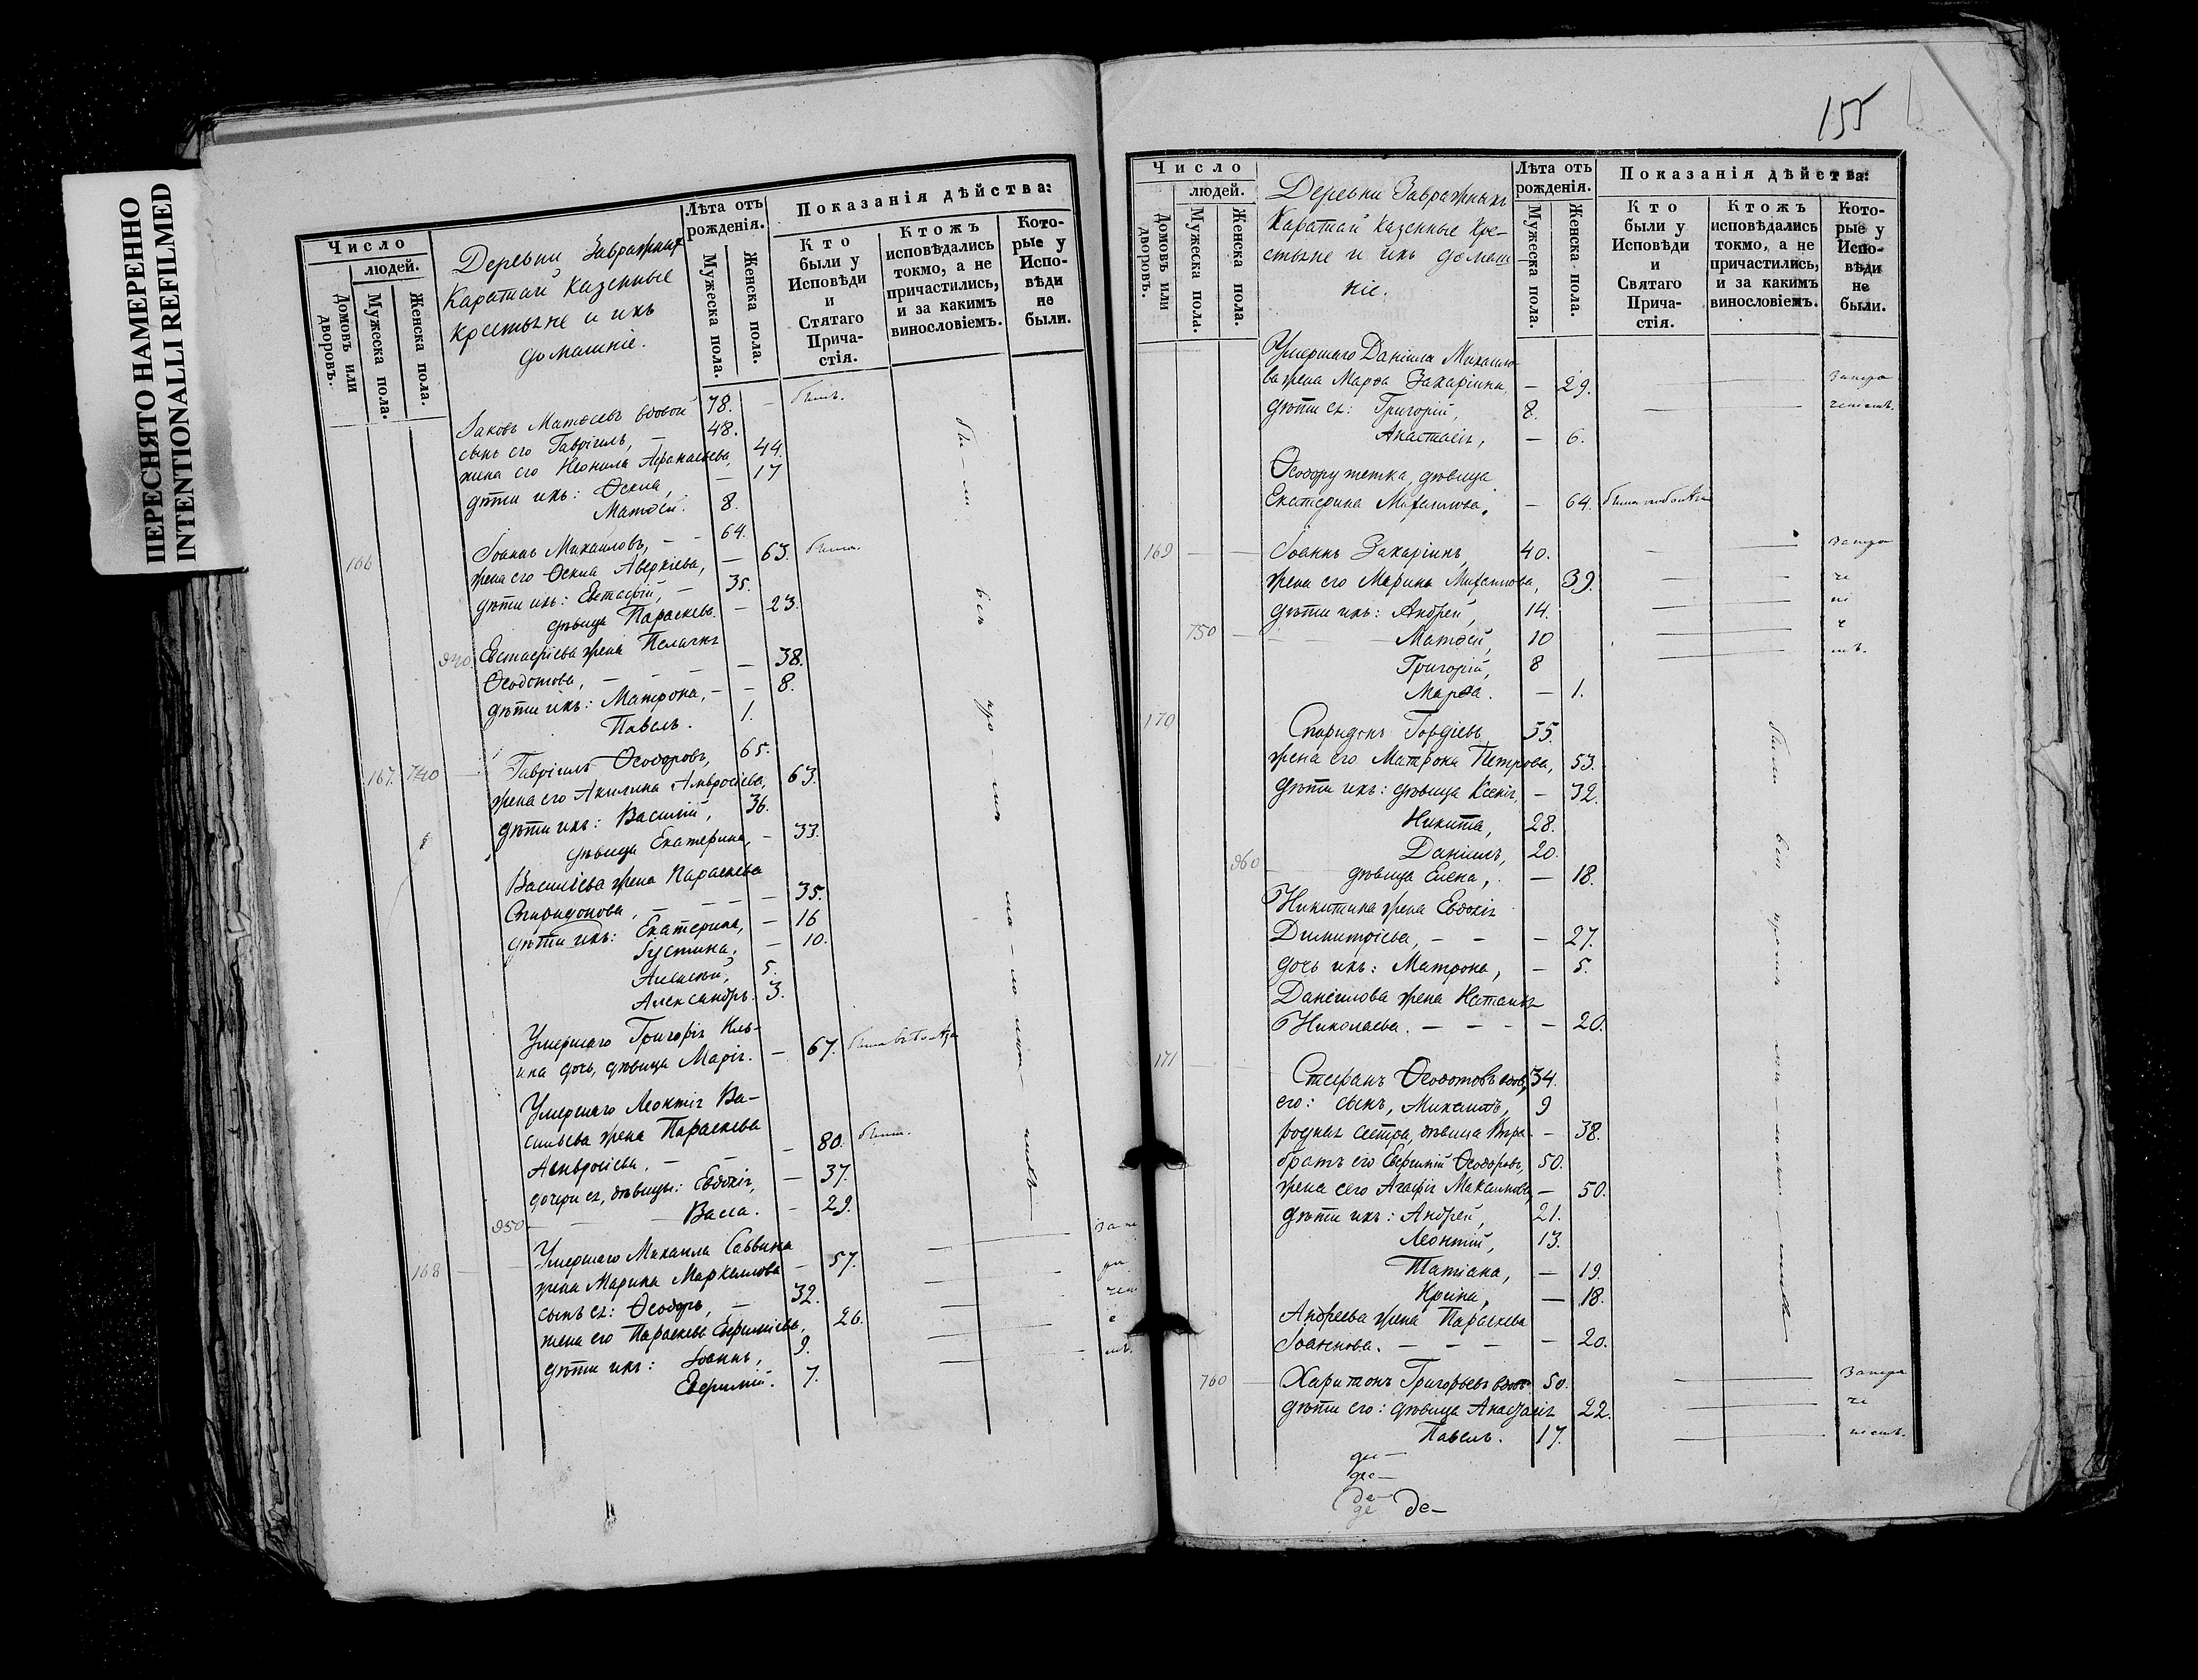 ПЕРЕСНЯТО НАМЕРЕННО
INTENTIONALLI REFILMED
Число
людей.
Домовъ или дворовъ.
Мужеска пола.
Женска пола.
Деревни Завражныхъ
Каратай казенные
крестьяне и ихъ
домашніе.
Лѣта отъ рожденія.
Мужеска пола.
Женска пола.
Показанія дѣйства:
Кто были у Исповѣди и Стятаго Прича- стія.
Ктожъ исповѣдались токмо, а не причастились, и за какимъ винословіемъ.
Кото- рые у Испо- вѣди не были.
Іаковъ Матѳеевъ вдовой 78. —
сынъ его Гавріилъ, — 48.
жена его Неонила Аѳанасьева, 44.
дѣти ихъ: Ѳекла, — 17
Матѳей. 8.
166 Іоаннъ Михаиловъ, — — 64.
жена его Ѳекла Аверкіева, — 63.
дѣти ихъ: Евстафій, — 35.
дѣвица Параскева. — 23.
940. Евстафіева жена Пелагія
Ѳеодотова, — — — — 38.
дѣти ихъ: Матрона, — — 8.
Павелъ. 1.
167. 740 — Гавріилъ Ѳеодоровъ, 65.
жена его Акилина Амвросіева, 63.
дѣти ихъ: Василій, 36.
дѣвица Екатерина, — 33.
Васильева жена Параскева
Спиридонова, — — — — 35.
дѣти ихъ: Екатерина, — 16
Іустина, — 10.
Алексѣй, 5.
Александръ. 3.
Умершаго Григорія Иль-
ина дочь, дѣвица Марія. — 67.
Умершаго Леонтія Ва-
сильева жена Параскева
Амвросіева. — — — 80.
дочери ея, дѣвицы: Евдокія, — 37.
950 — Васса. — 29.
Умершаго Михаила Саввина
168 — — жена Марина Маркеллова — 57.
сынъ ея: Ѳеодоръ, — 32.
жена его Параскева Евфиміева, 26.
дѣти ихъ: Іоаннъ, 9.
Евфимій. 7.
155
Число
людей.
Домовъ или дворовъ.
Мужеска пола.
Женска пола.
Деревни Завражныхъ
Каратай казенные кре-
стьяне и ихъ домаш
ніе.
Лѣта отъ рожденія.
Мужеска пола.
Женска пола.
Показанія дѣйства:
Кто были у Исповѣди и Святаго Прича- стія.
Ктожъ исповѣдались токмо, а не причастились, и за какимъ винословіемъ.
Кото- рые у Испо- вѣди не были.
Умершаго Даніила Михаило
ва жена Марѳа Захаріина, — 29.
дѣти ея: Григорій, 8.
Анастасія, — 6.
Ѳеодору тетка, дѣвица
Екатерина Михаилова. — 64.
169 — — Іоаннъ Захаріинъ, 40.
жена его Марина Михаилова, 39.
дѣти ихъ: Андрей, 14.
750 — Матѳей, 10
Григорій, 8
Марѳа. — 1.
170 Спиридонъ Гордіевъ 55.
жена его Матрона Петрова, 53.
дѣти ихъ: дѣвица Ксенія, — 32.
Никита, 28.
Даніилъ, 20.
960 дѣвица Елена, — 18.
Никитина жена Евдокія
Димитріева, — — — 27.
дочь ихъ: Матрона, — 5.
Даніилова жена Наталія
Николаева. — — — — 20.
171 — — Стефанъ Ѳеодотовъ вдов, 34.
его: сынъ, Михаилъ, 9
родная сестра, дѣвица Вѣра. — 38.
братъ его Евфимій Ѳеодоровъ, 50.
жена сего Агафія Максимова, — 50.
дѣти ихъ: Андрей, 21.
Леонтій, 13.
Татіана, — 19.
Ирина, — 18.
Андреева жена Параскева
Іоаннова. — — — — 20.
760 — Харитонъ Григорьевъ вдовъ 50.
дѣти его: дѣвица Анастасія 22.
Павелъ. 17.
де—
де—
де—
де де—